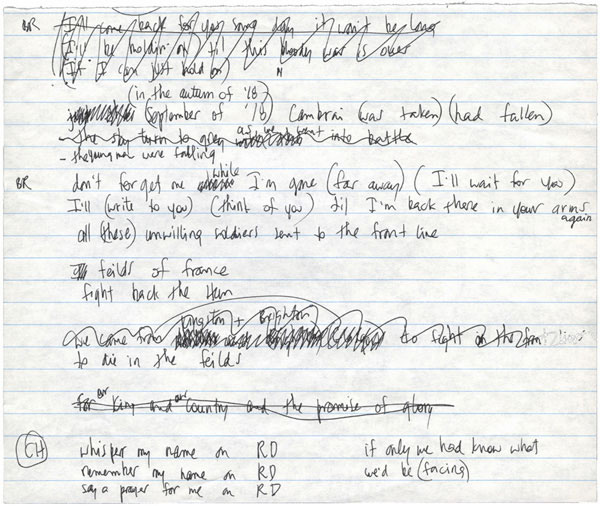 BR I'll come back for you some day it won't be long
I'll be holdin' on til this bloody war is over
(If I can just hold on)
(in the autumn of '18)
(September of '18) Cambrai (was taken) (had fallen)
the sky turn to grey as we went into battle
- the young men were falling
BR don't forget me while I'm gone (far away) (I'll wait for you)
I'll (write to you) (think of you) til I'm back there in your arms again
all (these) unwilling soldiers sent to the front line
feilds of france
fight back the Hun
Kingston + Brighton
we come from to fight on the front line
to die in the feilds
for our King and our Country and the promise of glory
CH whisper my name on RD if only we had know what
remember my name on RD we'd be (facing)
say a prayer for me on RD